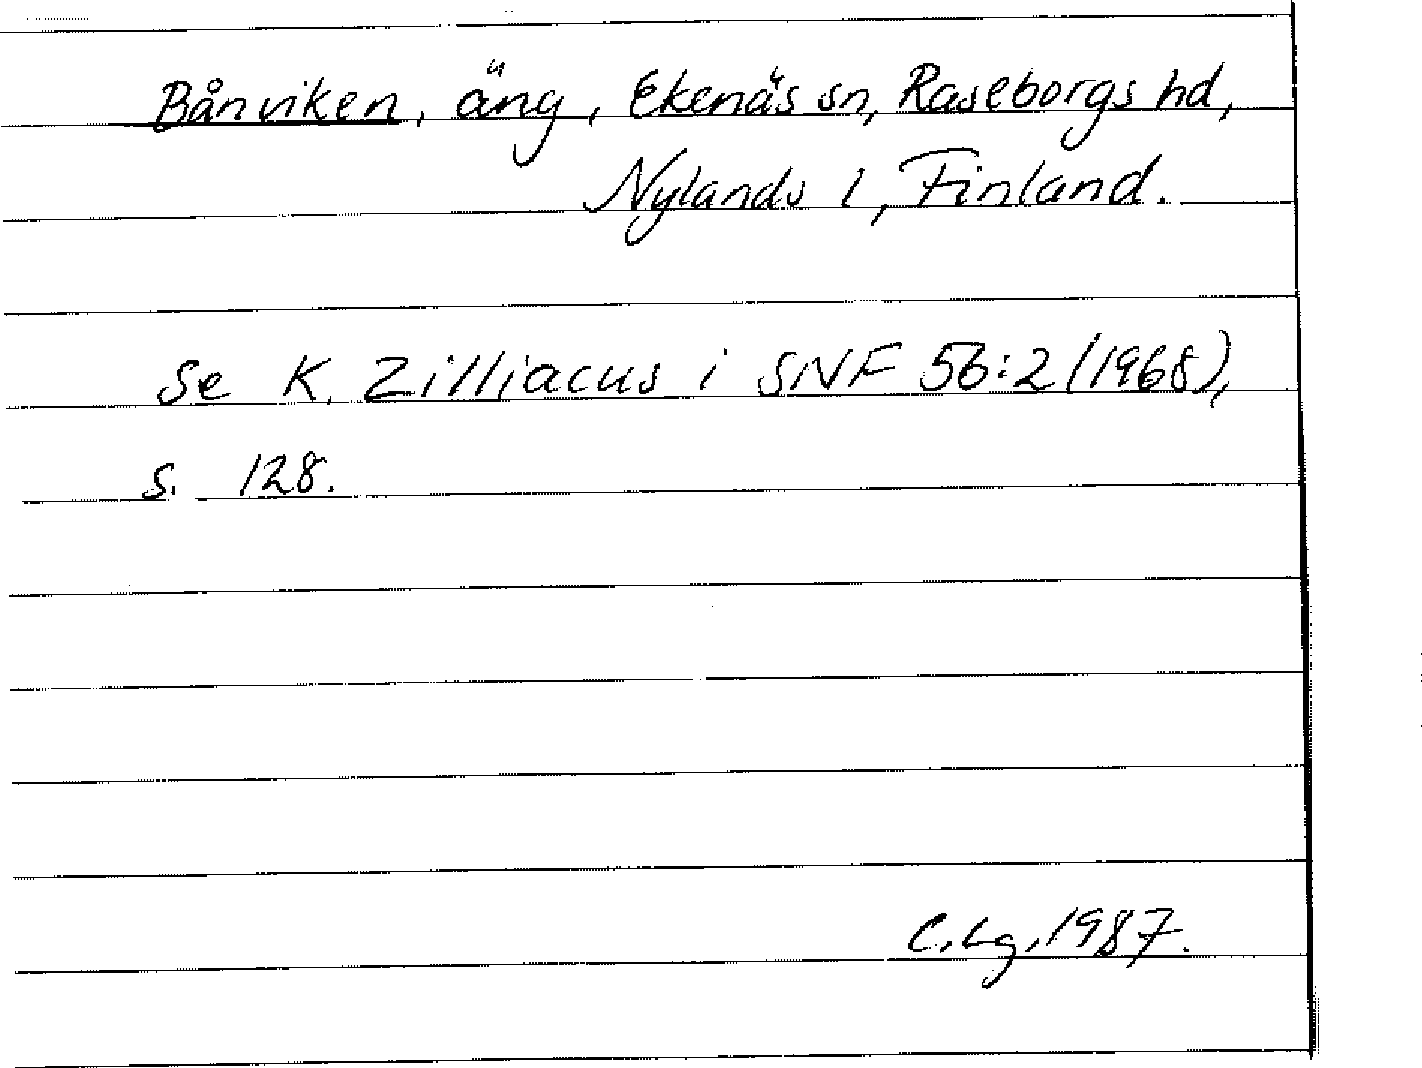 Bånviken, äng, Ekenäs sn, Raseborgs hd,
Nylands l, Finland.
Se K. Zilliacus i SNF 56:2 (1968),
s. 128.
C. Lg. 1987.